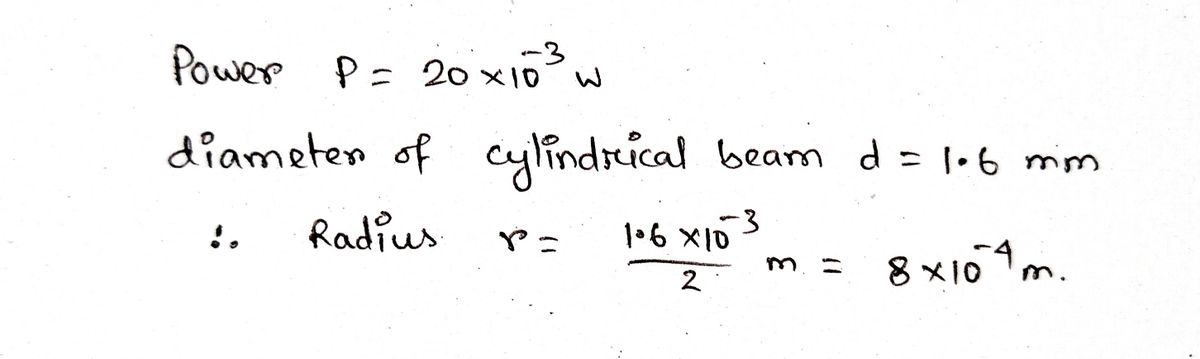 Power P = 20 ×10⁻³ W
diameter of cylindrical beam d = 1.6 mm
∴ Radius r = 1.6 ×10⁻³/2 m = 8 ×10⁻⁴ m.